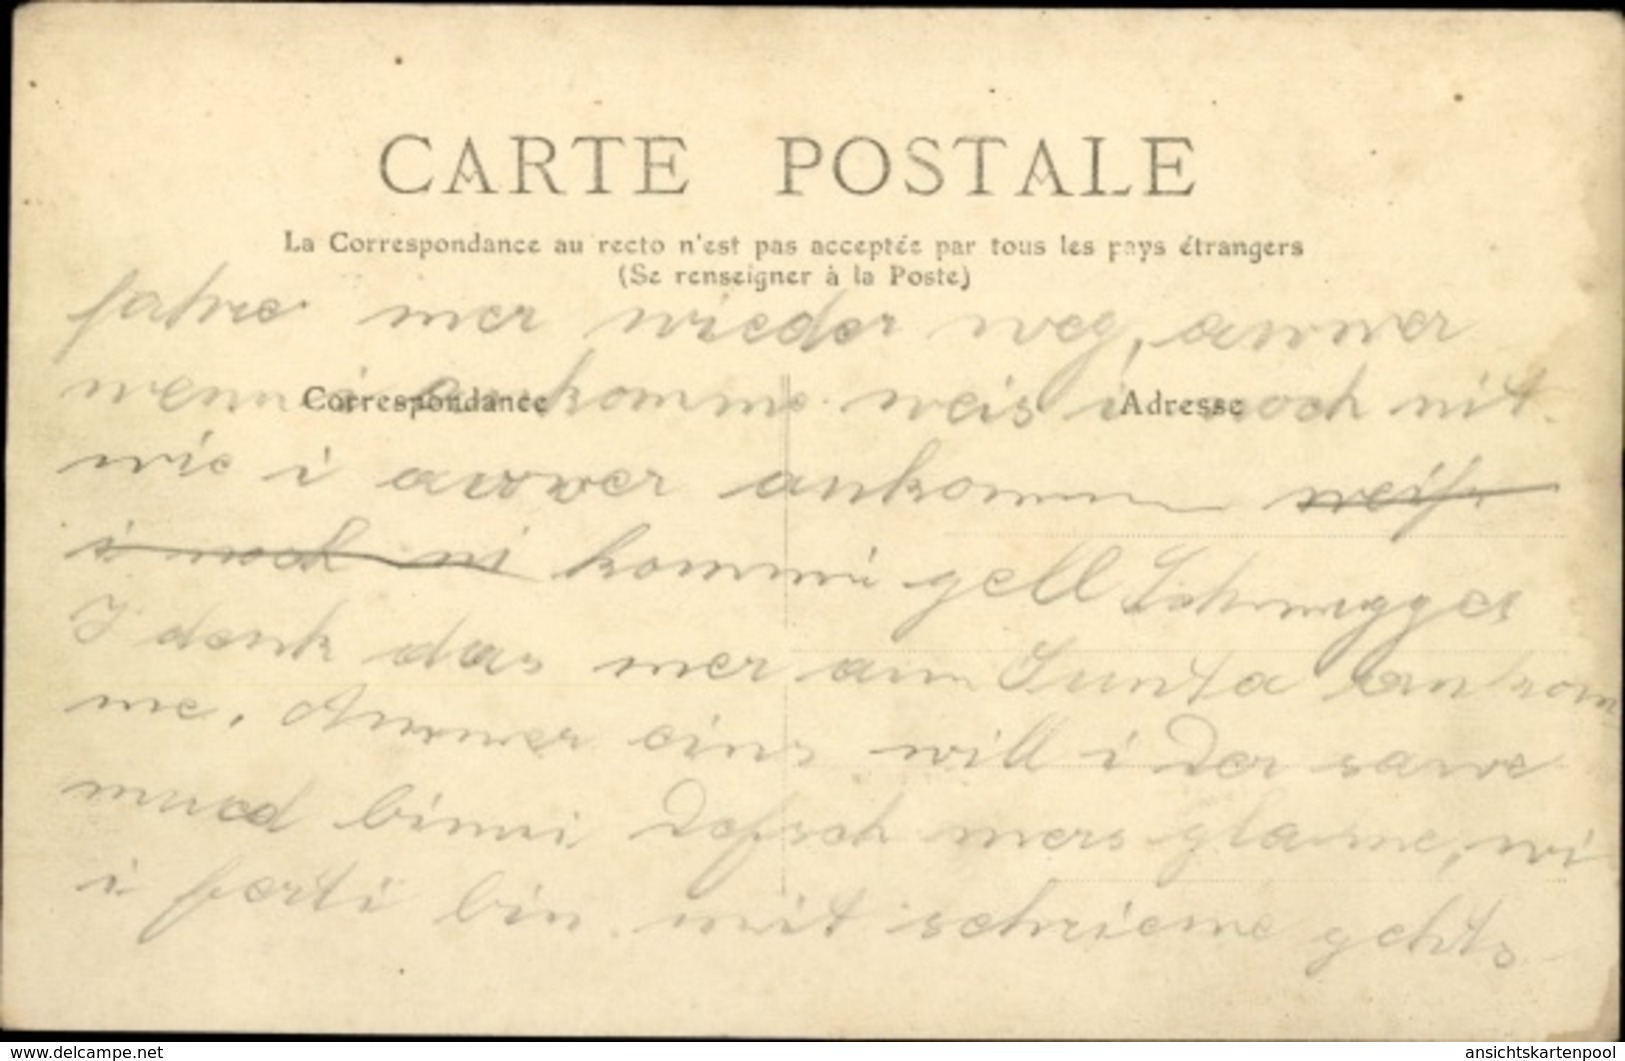 CARTE POSTALE
La Correspondance au recto n'est pas acceptée par tous les pays étrangers
(Se renseigner à la Poste)
fahre mer wieder weg, awwer
Correspondance
Adresse
wenn i ankomme weis i noch nit
wie i awwer ankomm weiß
i noch ni kommi gell
I denk das mer am Sunta ankom
me. Awwer eins will i der sawe
mued binni mers wi
i ferti bin mit schrieme gehts
www.delcampe.net
ansichtskartenpool